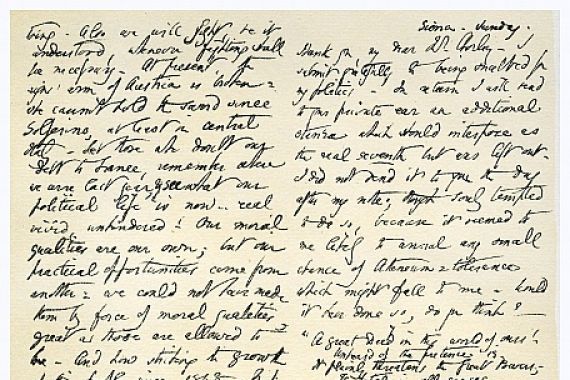 Siena. Sunday.
Thank you, my dear Mr. Chorley—
submit gratefully to being snubbed for
my politics. In return I will send
to your private ear an additional
stanza which would interpose as
the real seventh but was left out—
I did not send it to you the day
after my note; though sorely tempted
to do so, because it seemed to
me likely to annul any small
chance of Athenaeum = tolerance
which might fall to me — Would
it have done so, do you think?—
"A great deed in this world of ours!
Unheard of the pretence is.
It plainly threatens the Great Powers;
ting. Also we will fight, be it
understood, whenever fighting shall
be necessary. At present, the
right arm of Austria is broken =
she cannot hold the sword since
Solferino, at least in central
Italy. Let those who doubt our
debt to France, remember where
we were last year, & see what our
political life is now.. real
vivid unhindered! Our moral
qualities are our own; but our
practical opportunities come from
another = we could not have made
them by force of moral qualities
great as those are allowed to
be. And how striking the growth